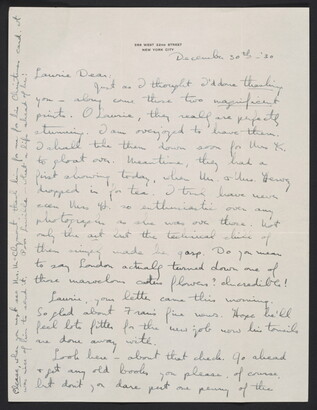 NEW YORK CITY
December 30th - '30
Laurie Dear:
Just as I thought I'd done thanking
you - along come those two magnificent
prints. O Laurie, they really are perfectly
stunning. I am overjoyed to have them.
I shall take them down soon for Mrs K.
to gloat over. Meantime, they had a
first showing today, when Mr. & Mrs. Henry
dropped in for tea. I think I have never
seen Mrs H. so enthusiastic over any
photographs as she was over these. Not
only the art but the technical skill of
them simply made me gasp. Do you mean
to say London actually turned down one of
those marvelous flowers? Incredible!
Laurie, your letter came this morning.
So glad about fine news. Hope he'll
feel lots fitter for the new job now his tonsils
are done away with.
Look here - about that check. Go ahead
& get any old books you please, of course
but don't you dare put one penny of the
Please when you next see Mr. thank him for me for his Christmas card. It
was nice of him to send it. Poor - what a life ahead of her!